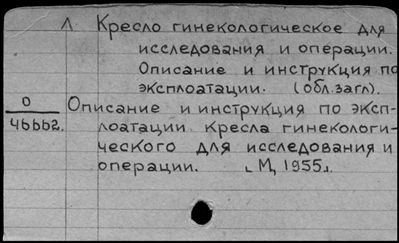 Л Кресло гинекологическое для
исследования и операции.
Описание и инструкция по
эксплоатации. (обл.загл).
О Описание и инструкция по эксп-
46662. лоатации кресла гинекологи-
ческого для исследования и
операции. [М, 1955].